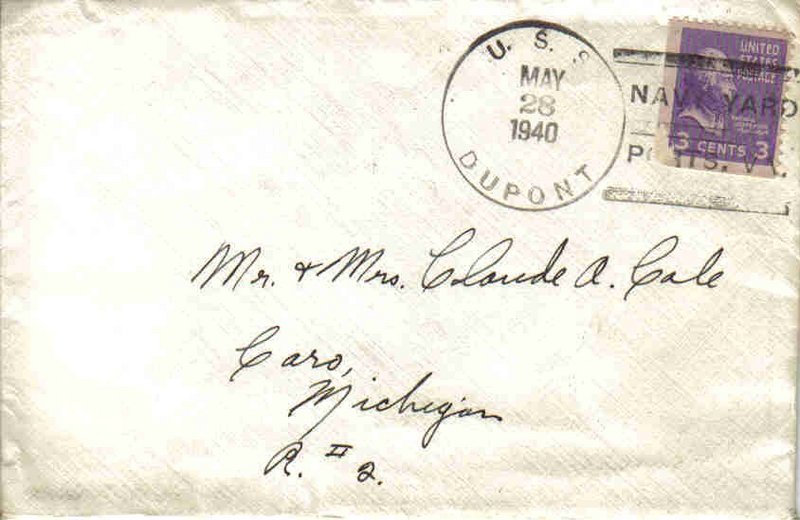 U. S. S
MAY
28
1940
DUPONT
NAVY YARD
PORTS. VA.
UNITED
STATES
POSTAGE
3 CENTS 3
Mr. & Mrs. Claude A. Cole
Caro,
Michigan
R. # 2.